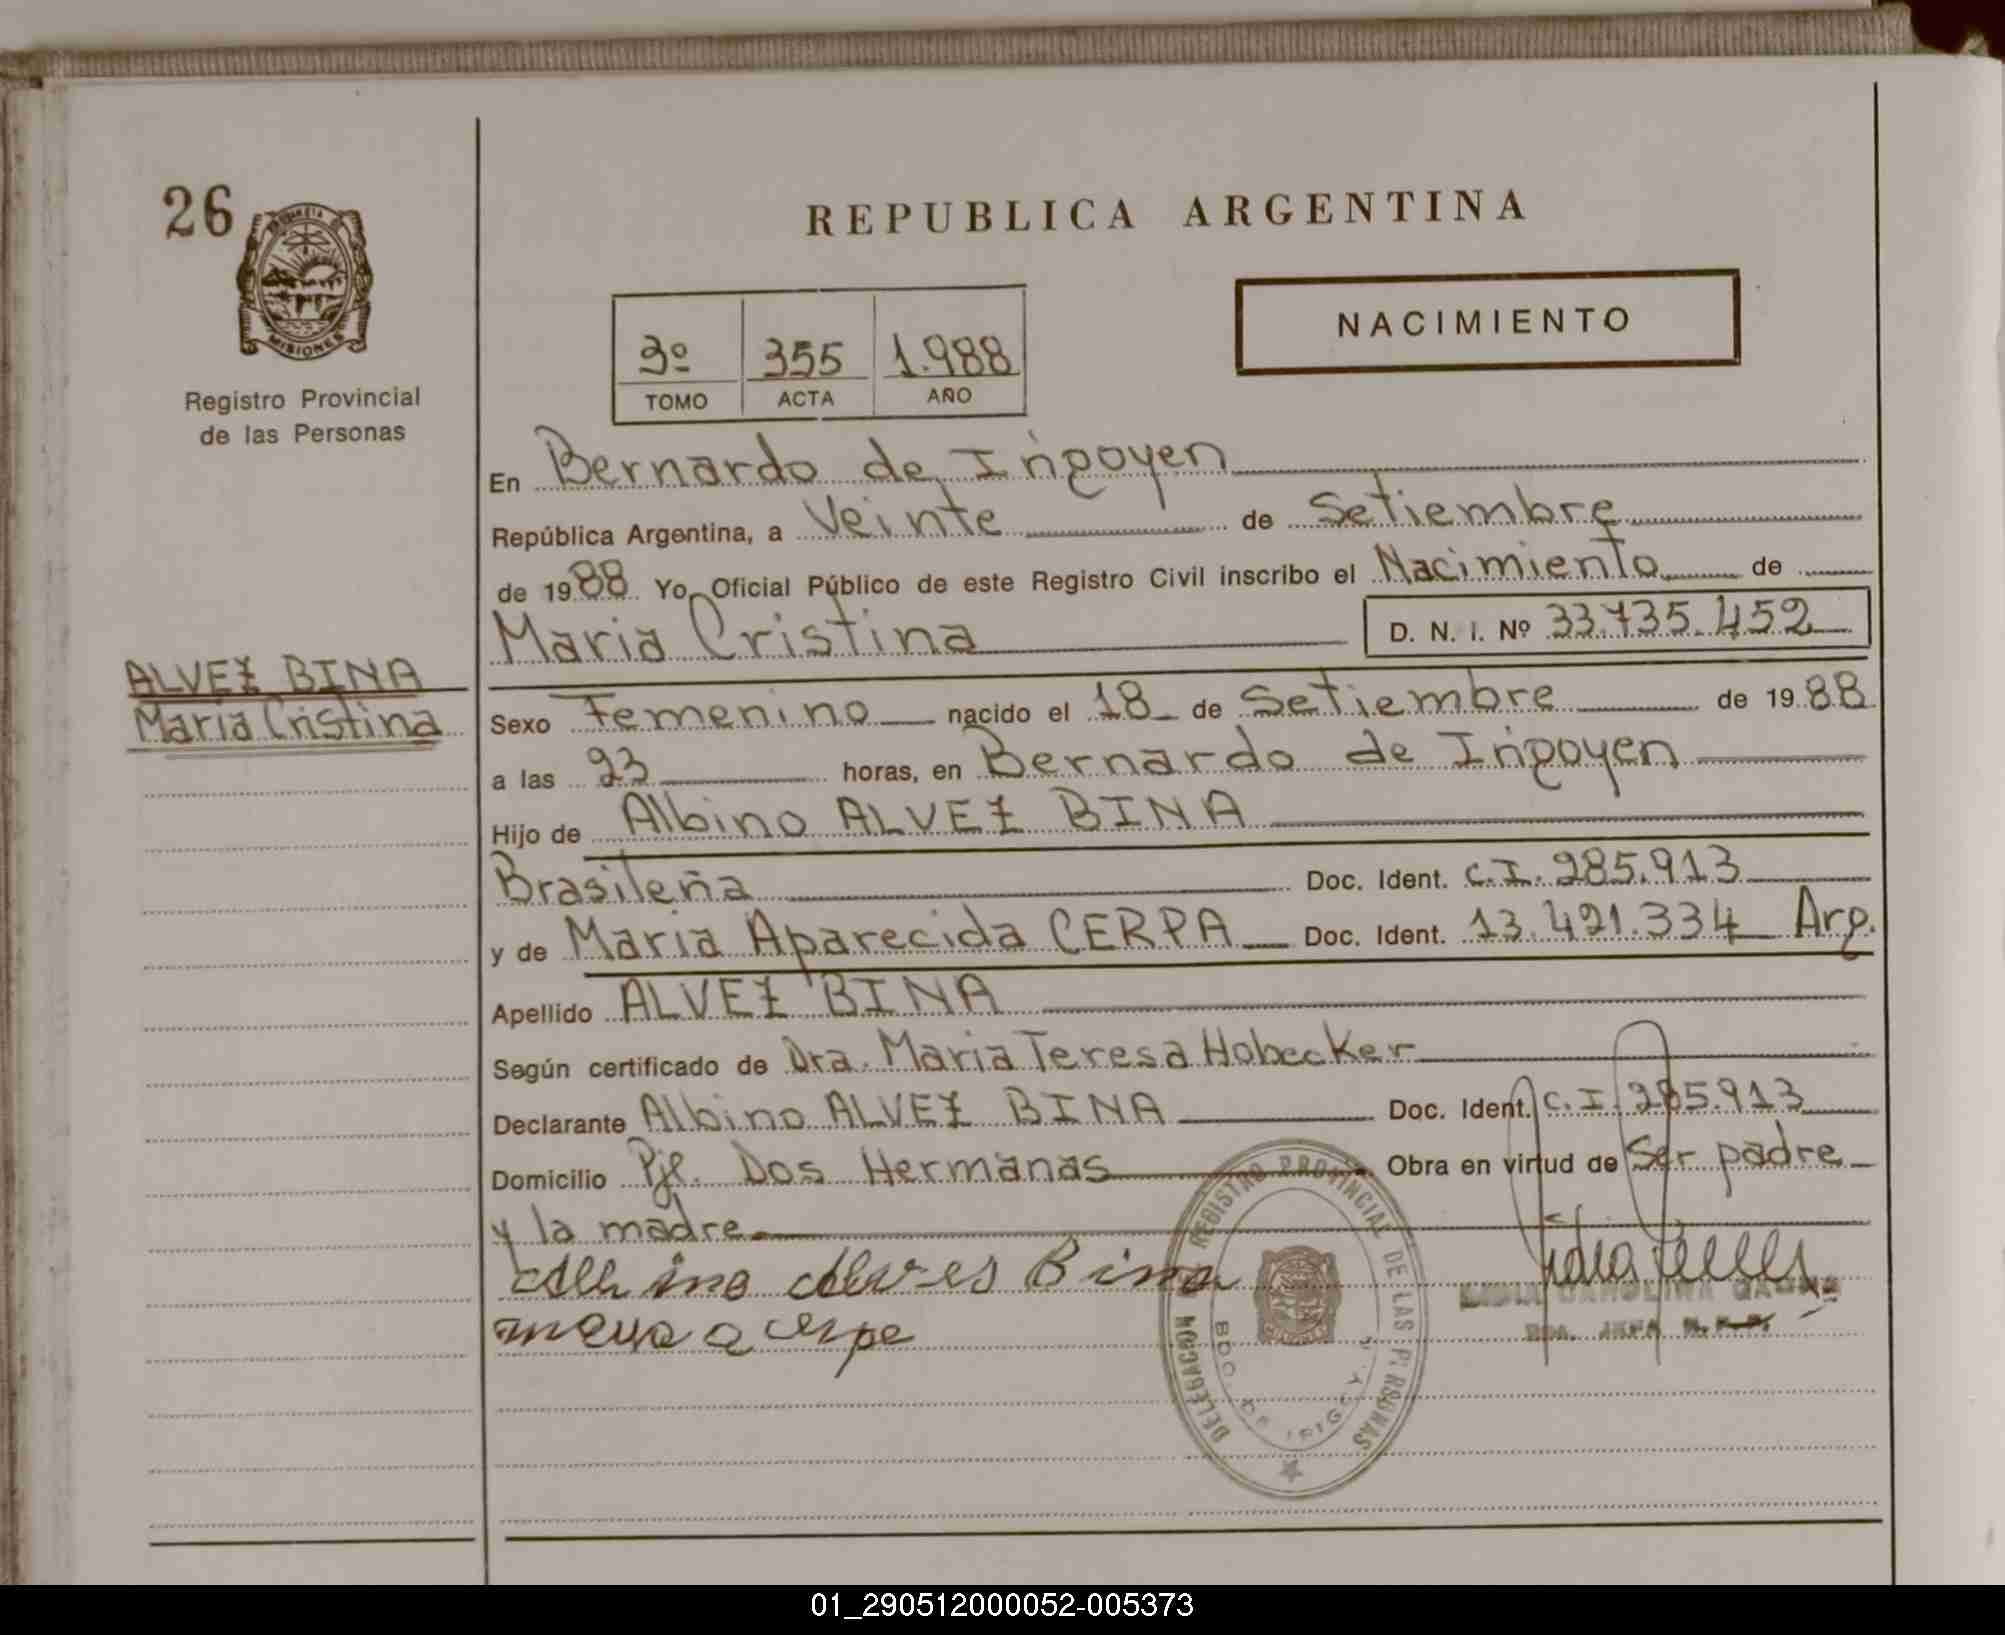 26
MISIONES
Registro Provincial
de las Personas
REPUBLICA ARGENTINA
NACIMIENTO
3º 355 1.988
TOMO ACTA AÑO
En Bernardo de Irigoyen
República Argentina, a Veinte de Setiembre
de 1988 Yo, Oficial Público de este Registro Civil inscribo el Nacimiento de
Maria Cristina D. N. I. Nº 33.735.452
ALVEZ BINA
Maria Cristina
Sexo Femenino nacido el 18 de Setiembre de 1988
a las 23 horas, en Bernardo de Irigoyen
Hijo de Albino ALVEZ BINA
Brasileña Doc. Ident. C.I. 285.913
y de Maria Aparecida CERPA Doc. Ident. 13.421.334 Arg.
Apellido ALVEZ BINA
Según certificado de Dra. Maria Teresa Hobecker
Declarante Albino ALVEZ BINA Doc. Ident. C.I. 285.913
Domicilio Pje. Dos Hermanas Obra en virtud de Ser padre
y la madre
Albino Alves Bina
DELEGACION REGISTRO PROVINCIAL DE LAS PERSONAS
BDO DE IRIGOYEN
01_290512000052-005373